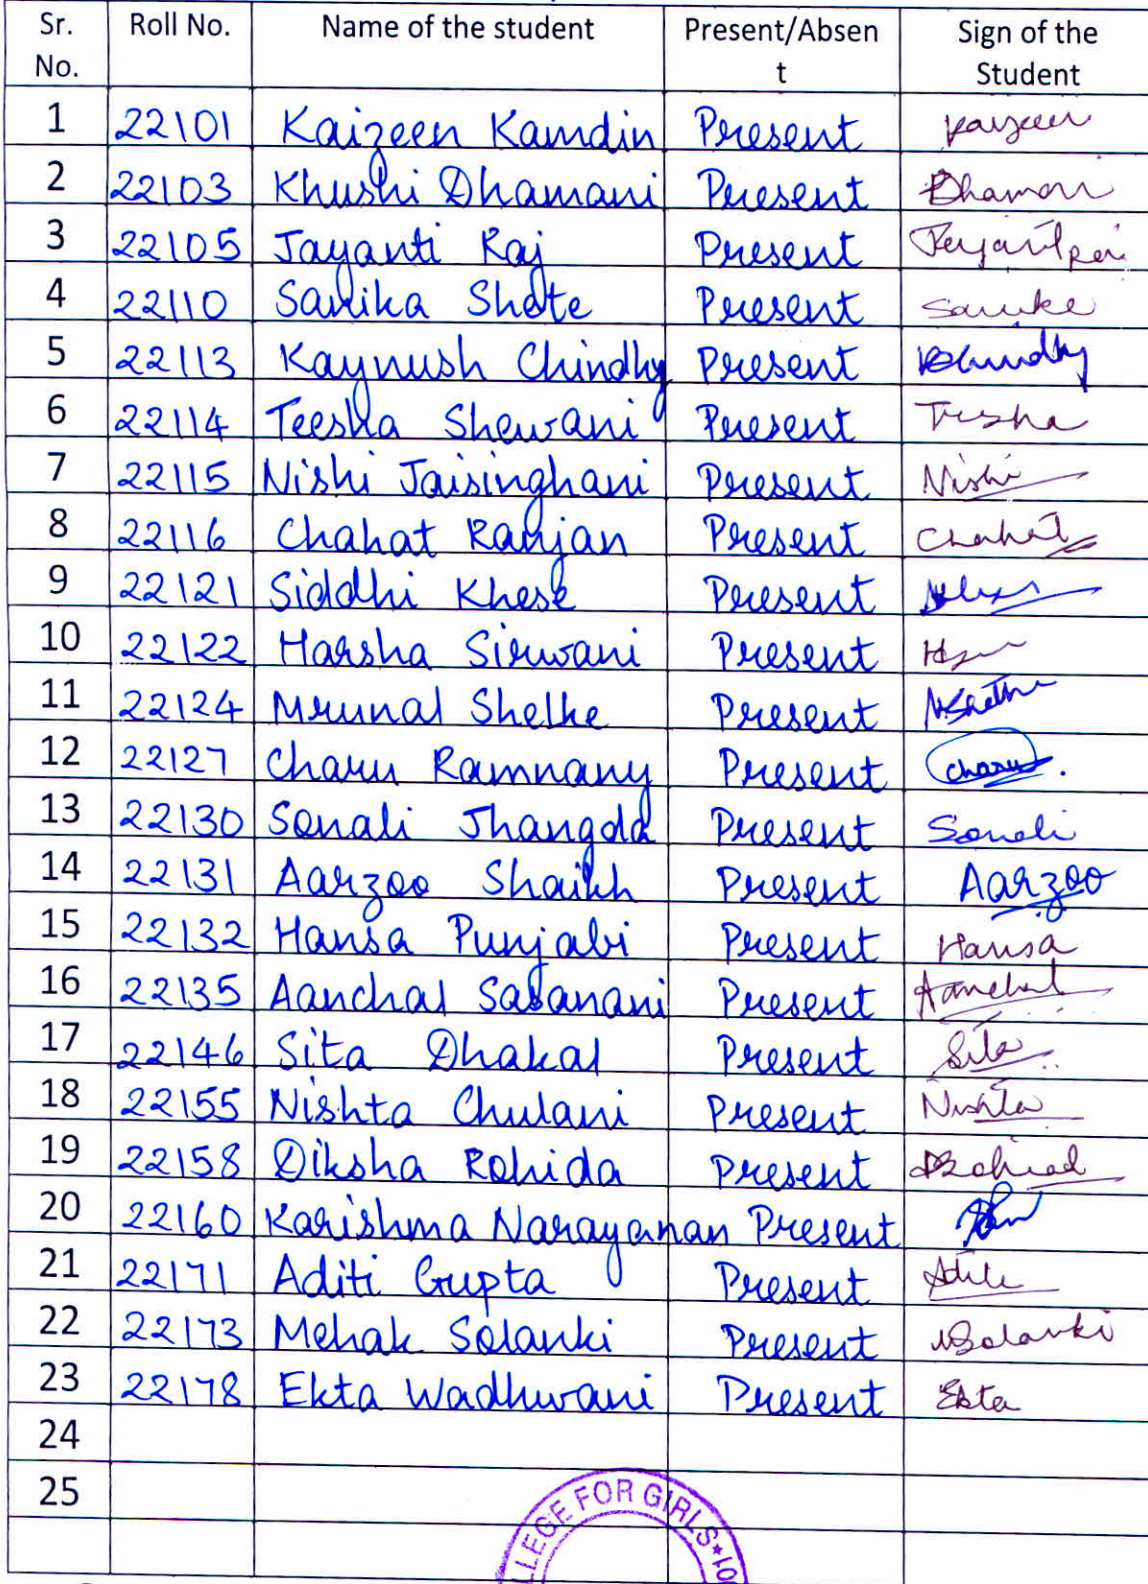 Sr. No. Roll No. Name of the student Present/Absent Sign of the Student
1 22101 Kaizeen Kamdin Present Kaizeen
2 22103 Khushi Dhamani Present Dhamani
3 22105 Jayanti Raj Present
4 22110 Sanika Shete Present Sanika
5 22113 Kaynush Chindhy Present
6 22114 Teesha Shewani Present Teesha
7 22115 Nishi Jaisinghani Present Nishi
8 22116 Chahat Ranjan Present Chahat
9 22121 Siddhi Khese Present
10 22122 Harsha Sirwani Present
11 22124 Mrunal Shelke Present
12 22127 Charu Ramnany Present Charu.
13 22130 Sonali Jhangda Present Sonali
14 22131 Aarzoo Shaikh Present Aarzoo
15 22132 Hansa Punjabi Present Hansa
16 22135 Aanchal Sasanani Present Aanchal
17 22146 Sita Dhakal Present Sita
18 22155 Nishta Chulani Present Nishta
19 22158 Diksha Rohida Present
20 22160 Karishma Narayanan Present
21 22171 Aditi Gupta Present
22 22173 Mehak Solanki Present MSolanki
23 22178 Ekta Wadhwani Present Ekta
24
25
LLEGE FOR GIRLS